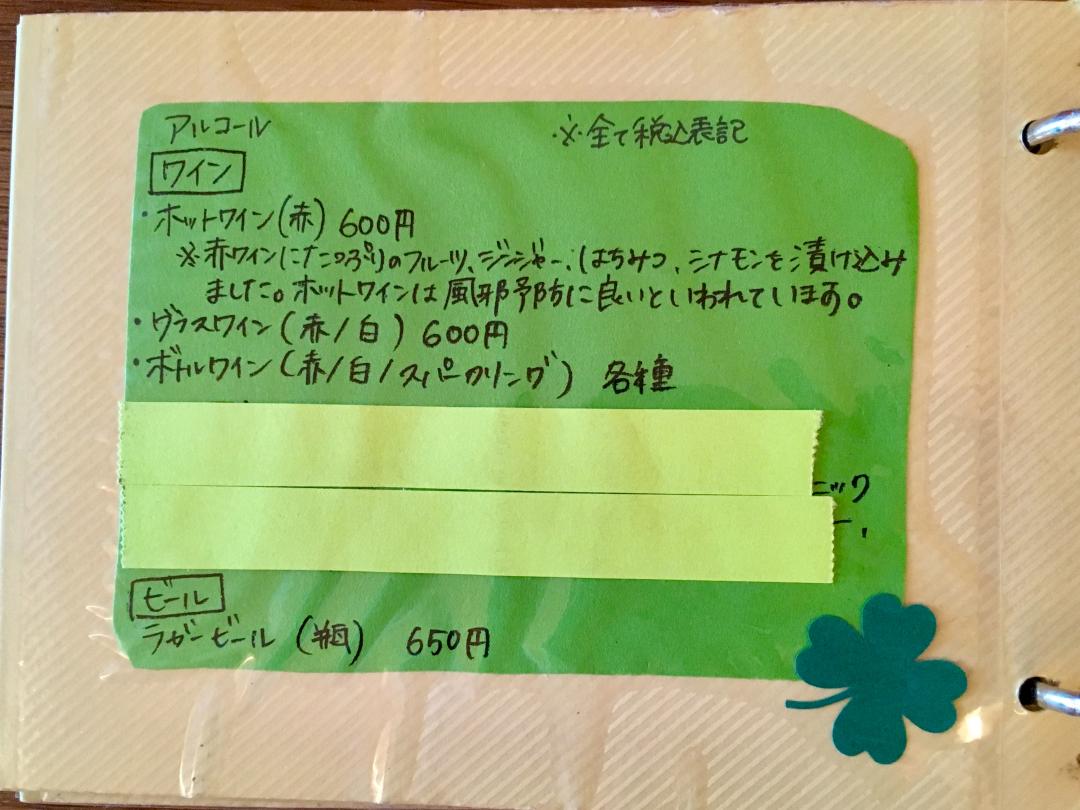 アルコール ※全て税込表記
ワイン
・ホットワイン(赤) 600円
※赤ワインにたっぷりのフルーツ、ジンジャー、はちみつ、シナモンを漬け込み
ました。ホットワインは風邪予防に良いといわれています。
・グラスワイン(赤/白) 600円
・ボトルワイン(赤/白/スパークリング) 各種
ニック
ビール
ラガービール(瓶) 650円